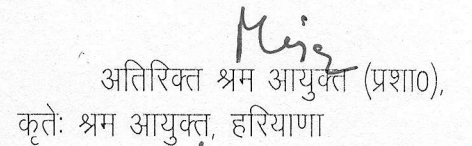 अतिरिक्त श्रम आयुक्त (प्रशा0),
कृतेः श्रम आयुक्त, हरियाणा